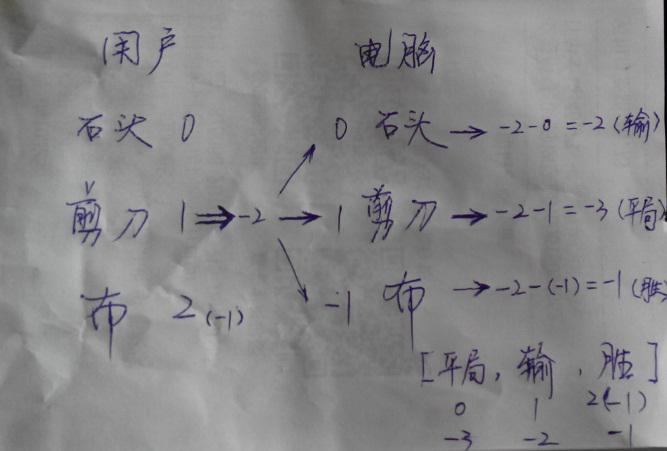 用户 电脑
石头 0 0 石头 → -2-0=-2(输)
剪刀 1 ⇒ -2 → 1 剪刀 → -2-1=-3(平局)
布 2(-1) -1 布 → -2-(-1)=-1(胜
[平局, 输, 胜]
0 1 2(-1)
-3 -2 -1